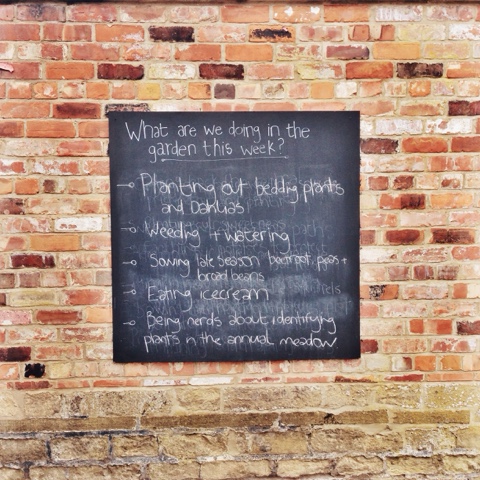 What are we doing in the
garden this week?
Planting out bedding plants
and Dahlias
Weeding + watering
Sowing late season beetroot, peas +
broad beans
Eating icecream
Being nerds about identifying
plants in the annual meadow